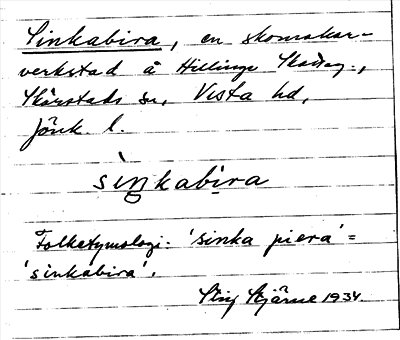 Sinkabira, en skomakar-
verkstad å Hillinge
Skärstads sn, Vista hd,
Jönk. l.
sìŋkabira
Folketymologi: 'sinka piera' =
'sinkabira'.
Stig Stjärne 1934.